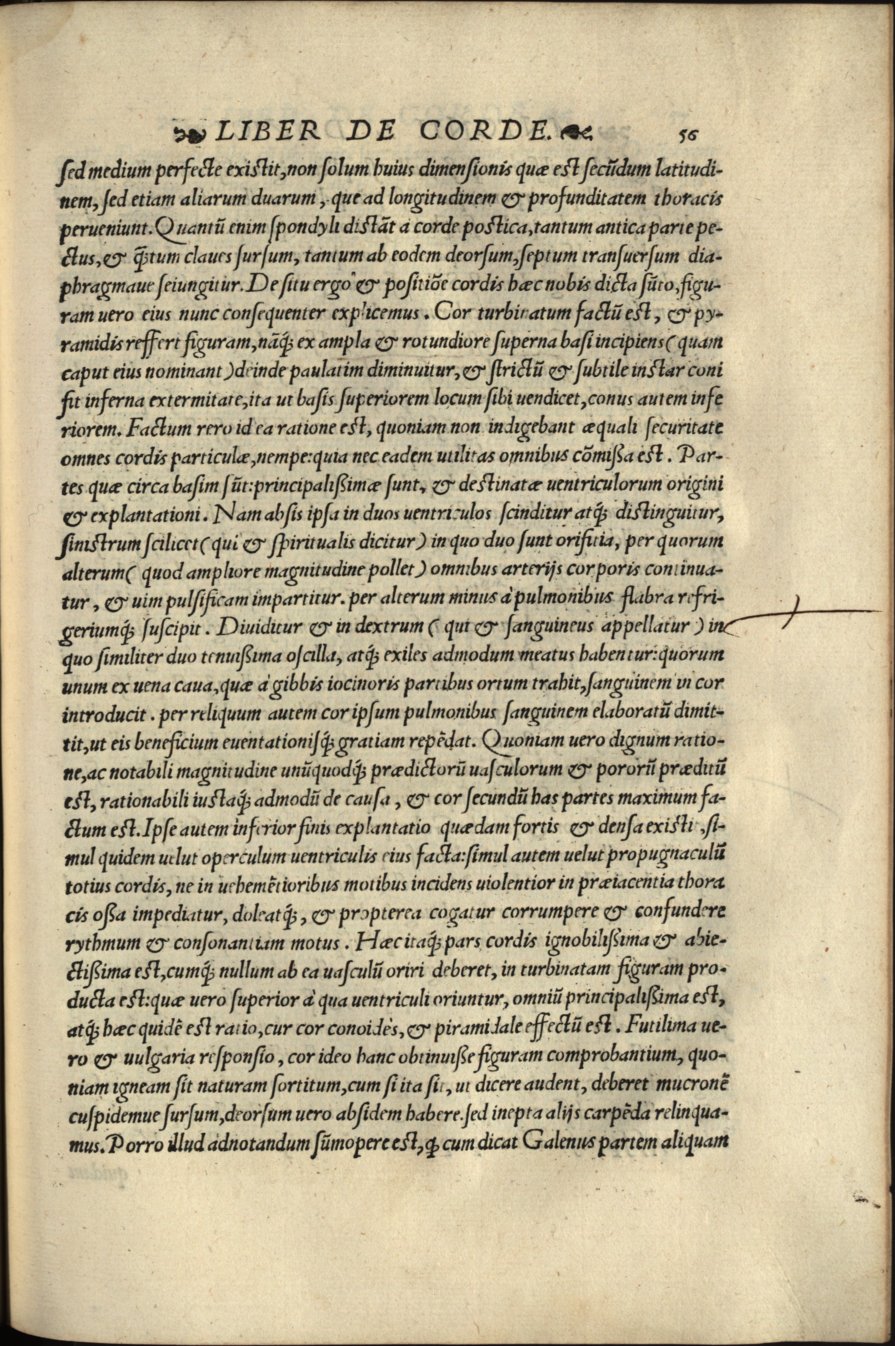 LIBER DE CORDE. 56
sed medium perfecte existit, non solum huius dimensionis quæ est secũdum latitudi-
nem, sed etiam aliarum duarum, que ad longitudinem & profunditatem thoracis
perueniunt. Quantũ enim spondyli distãt a corde postica, tantum antica parte pe-
ctus, & q̃tum claues sursum, tantum ab eodem deorsum, septum transuersum dia-
phragmaue seiungitur. De situ ergo & positiõe cordis hæc nobis dicta sũto, figu-
ram uero eius nunc consequenter explicemus. Cor turbinatum factũ est, & py-
ramidis reffert figuram, nãq́; ex ampla & rotundiore superna basi incipiens (quam
caput eius nominant) deinde paulatim diminuitur, & strictũ & subtile instar coni
fit inferna extermitate, ita ut basis superiorem locum sibi uendicet, conus autem infe
riorem. Factum rero id ea ratione est, quoniam non indigebant æquali securitate
omnes cordis particulæ, nempe: quia nec eadem utilitas omnibus cõmißa est. Par-
tes quæ circa basim sũt: principalißimæ sunt, & destinatæ uentriculorum origini
& explantationi. Nam absis ipsa in duos uentriculos scinditur atq́; distinguitur,
sinistrum scilicet (qui & spiritualis dicitur) in quo duo sunt orifitia, per quorum
alterum (quod ampliore magnitudine pollet) omnibus arterijs corporis continua-
tur, & uim pulsificam impartitur. per alterum minus à pulmonibus flabra refri-
geriumq́; suscipit. Diuiditur & in dextrum (qui & sanguineus appellatur) in
quo similiter duo tenuißima oscilla, atq́; exiles admodum meatus habentur: quorum
unum ex uena caua, quæ à gibbis iocinoris partibus ortum trahit, sanguinem in cor
introducit. per reliquum autem cor ipsum pulmonibus sanguinem elaboratũ dimit-
tit, ut eis beneficium euentationisq́; gratiam repẽdat. Quoniam uero dignum ratio-
ne, ac notabili magnitudine unũquodq́; prædictorũ uasculorum & pororũ præditũ
est, rationabili iustaq́; admodũ de causa, & cor secundũ has partes maximum fa-
ctum est. Ipse autem inferior finis explantatio quædam fortis & densa existit, si-
mul quidem uelut operculum uentriculis eius facta: simul autem uelut propugnaculũ
totius cordis, ne in uehemẽtioribus motibus incidens uiolentior in præiacentia thora
cis oßa impediatur, doleatq́;, & propterea cogatur corrumpere & confundere
rythmum & consonantiam motus. Hæc itaq́; pars cordis ignobilißima & abie-
ctißima est, cumq́; nullum ab ea uasculũ oriri deberet, in turbinatam figuram pro-
ducta est: quæ uero superior à qua uentriculi oriuntur, omniũ principalißima est,
atq́; hæc quidẽ est ratio, cur cor conoidès, & piramidale effectũ est. Futilima ue-
ro & uulgaria responsio, cor ideo hanc obtinuiße figuram comprobantium, quo-
niam igneam sit naturam sortitum, cum si ita sit, ut dicere audent, deberet mucronẽ
cuspidemue sursum, deorsum uero absidem habere. sed inepta alijs carpẽda relinqua-
mus. Porro illud adnotandum sũmopere est, ꝙ cum dicat Galenus partem aliquam